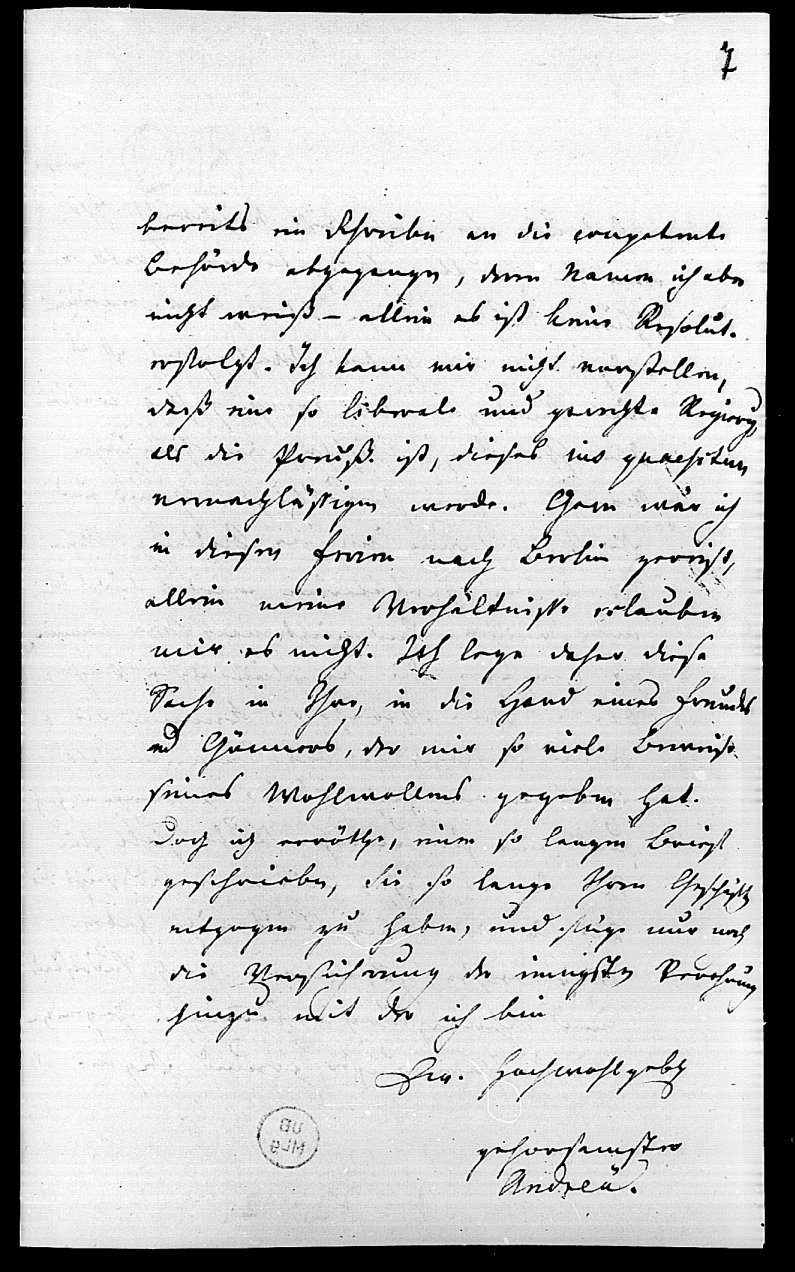 7
bereits ein Schreiben an die competente
Behörde abgegangen, deren Namen ich aber
nicht weiß – allein es ist keine Resolut.
erfolgt. Ich kann mir nicht vorstellen,
daß eine so liberale und gerechte Regierung
als die Preuß. ist, dieses ius quaesitum
vernachlässigen werde. Gern wär ich
in diesen Ferien nach Berlin gereist,
allein meine Verhältnisse erlauben
mir es nicht. Ich lege daher diese
Sache in Ihre, in die Hand eines Freundes
und Gönners, der mir so viele Beweise
seines Wohlwollens gegeben hat.
Doch ich erröthe, einen so langen Brief
geschrieben, Sie so lange Ihren Geschäften
entzogen zu haben, und füge nur noch
die Versicherung der innigsten Verehrung
hinzu mit der ich bin
Ew. Hochwohlgeb
gehorsamster
Andreä.